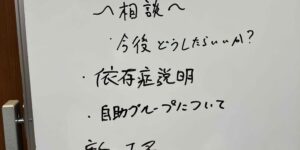 〜相談〜
・今後どうしたらいいか?
・依存症説明
・自助グループについて